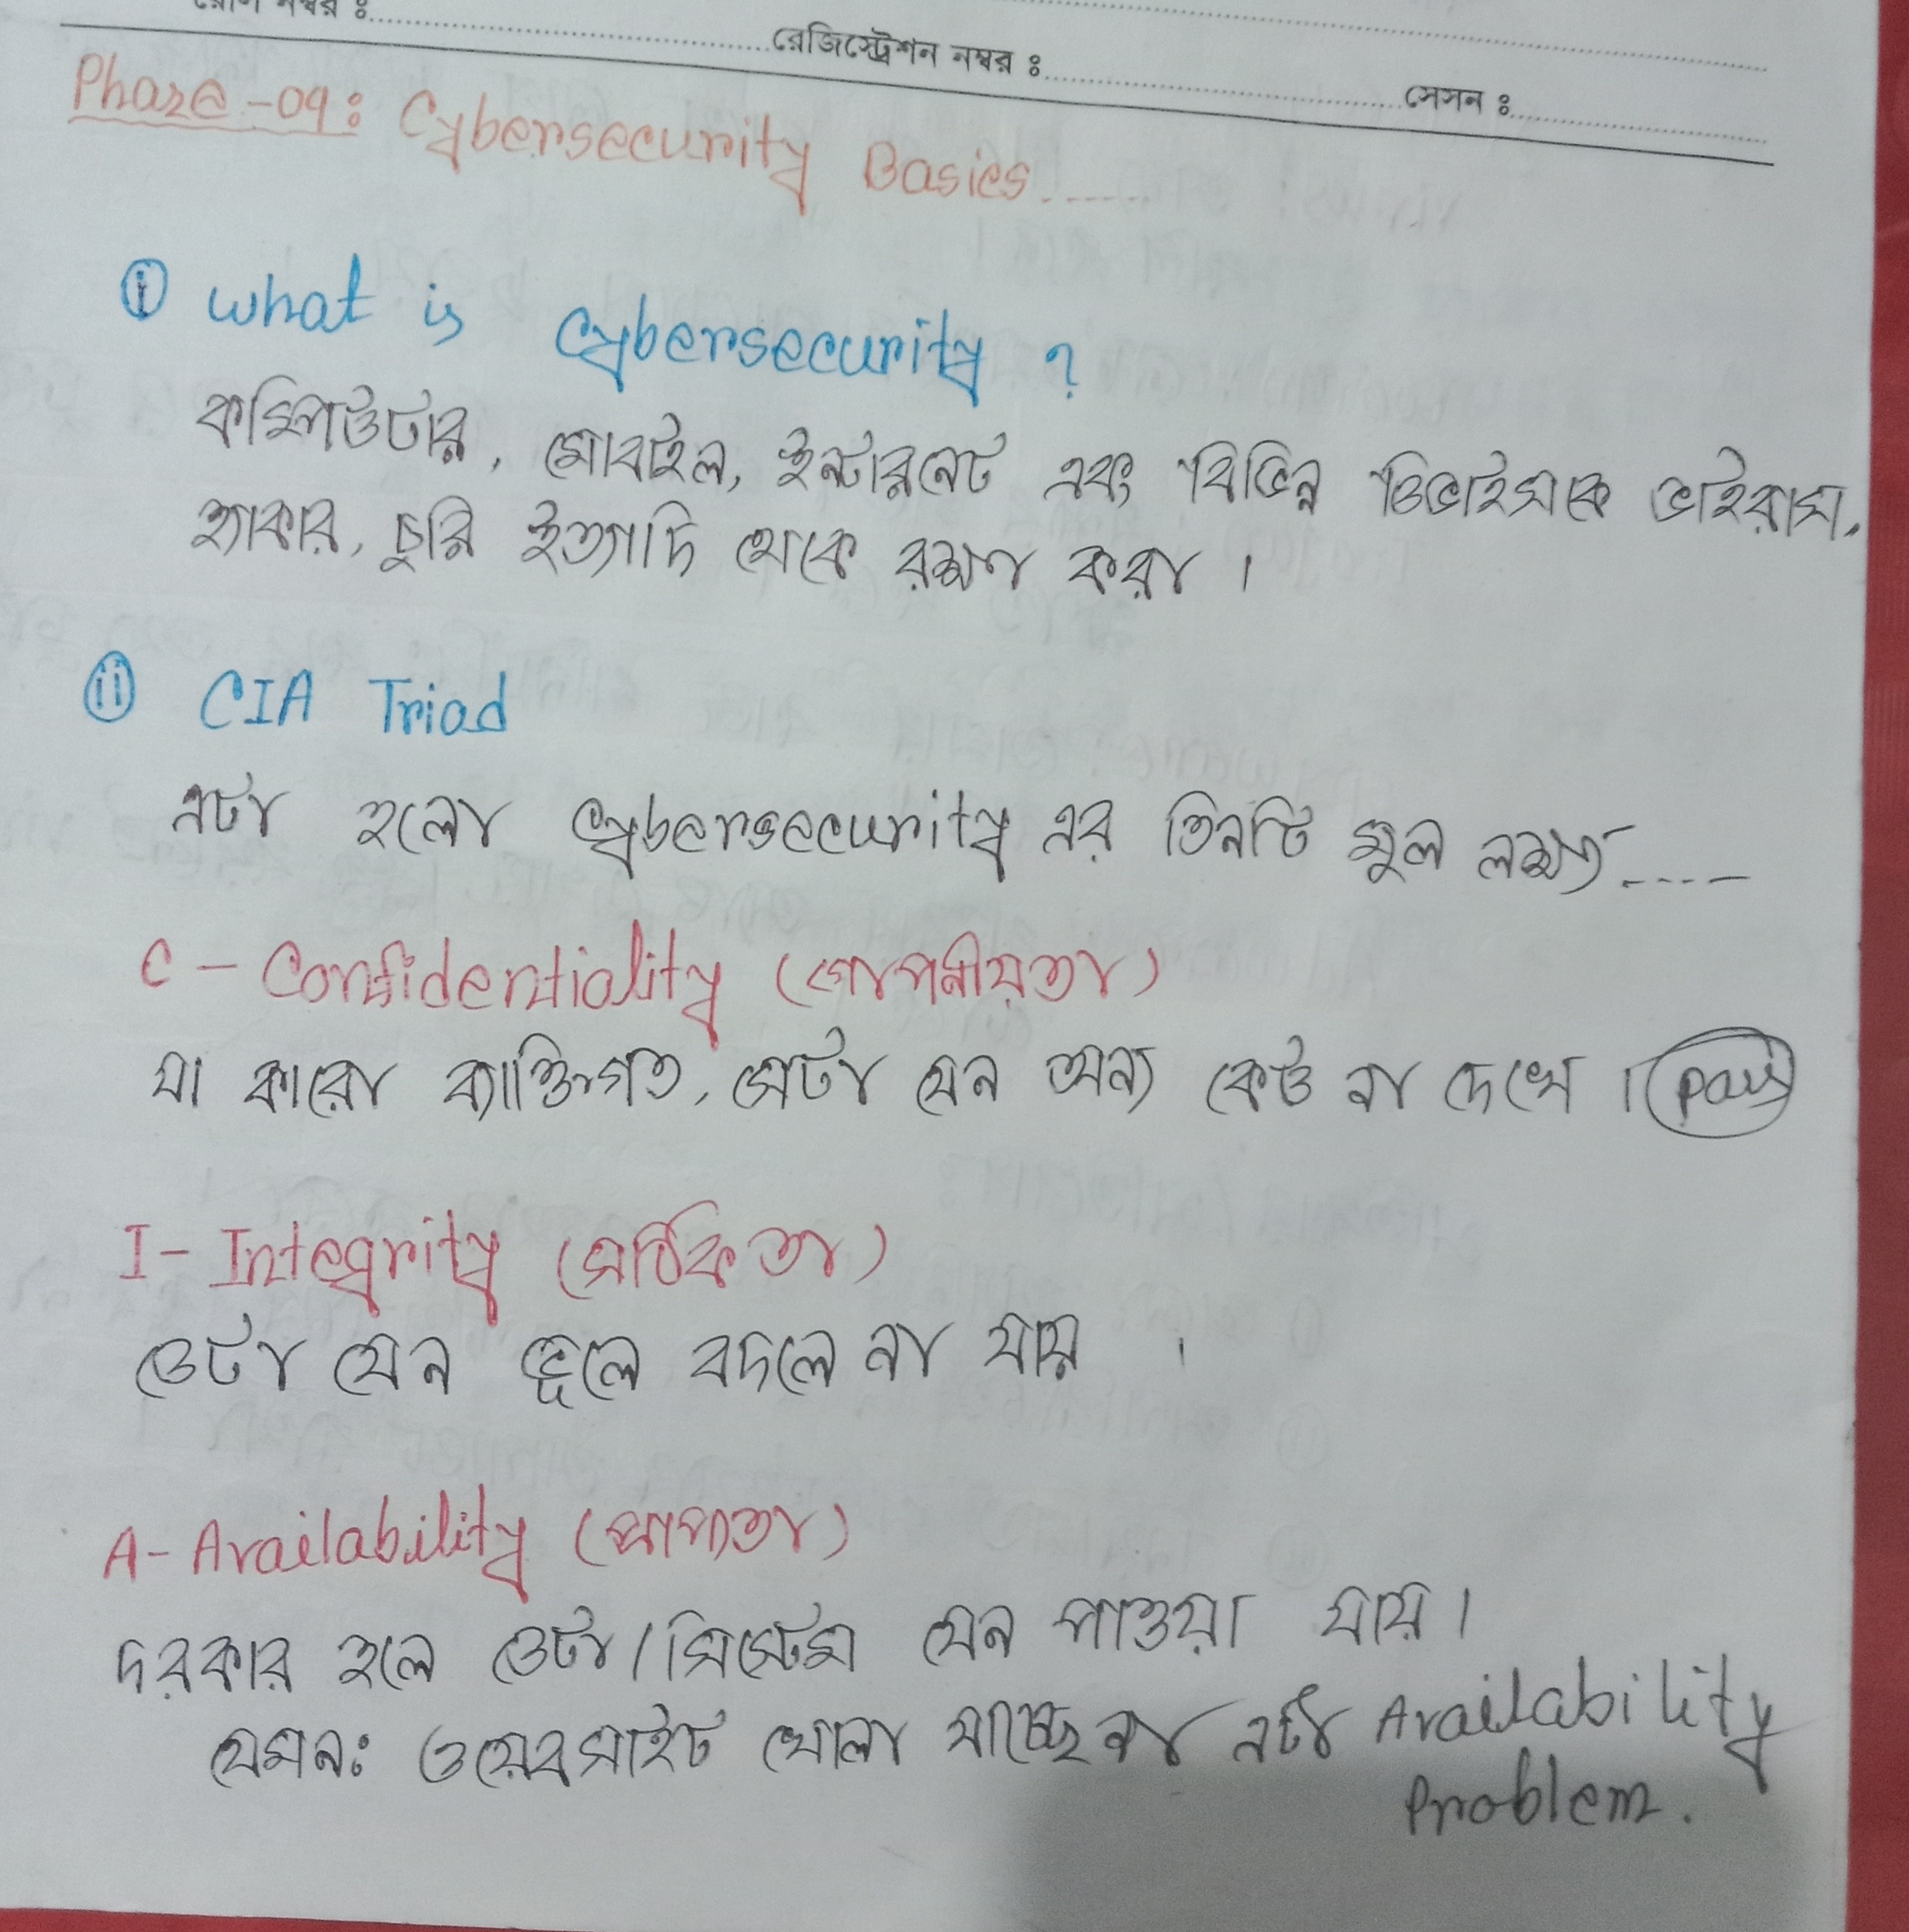 রোল নম্বর ঃ
রেজিস্ট্রেশন নম্বর ঃ
সেসন ঃ
Phaze-09: Cybersecurity Basics.....
i What is Cybersecurity ?
কম্পিউটার, মোবাইল, ইন্টারনেট এবং বিভিন্ন ডিভাইসকে ভাইরাস,
হ্যাকার, চুরি ইত্যাদি থেকে রক্ষা করা ।
ii CIA Triad
এটা হলো Cybersecurity এর তিনটি মূল লক্ষ্য.....
C - Confidentiality (গোপনীয়তা)
যা কারো ব্যাক্তিগত, সেটা যেন অন্য কেউ না দেখে । pass
I - Integrity (সঠিকতা)
ডেটা যেন ভুলে বদলে না যায় ।
A - Availability (প্রাপ্যতা)
দরকার হলে ডেটা/সিস্টেম যেন পাওয়া যায় ।
যেমনঃ ওয়েবসাইট খোলা যাচ্ছে না এটা Availability
Problem.